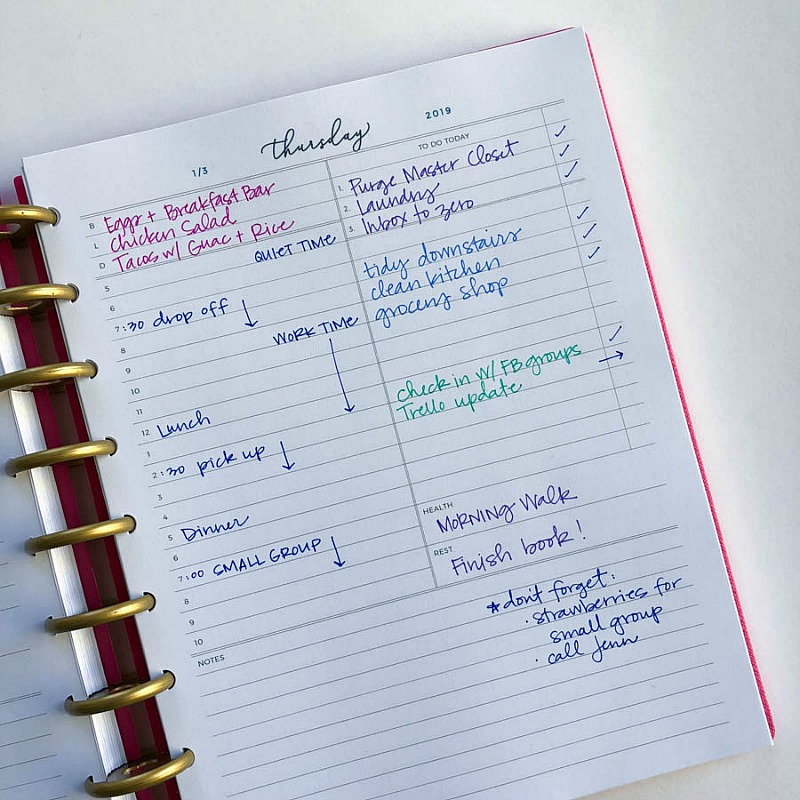 1/3 thursday 2019
B Eggs + Breakfast Bar
L Chicken Salad
D Tacos w/ Guac + Rice
QUIET TIME
5
6
7:30 drop off
8
WORK TIME
9
10
11
12 Lunch
1
2:30 pick up
3
4
5 Dinner
6
7:00 SMALL GROUP
8
9
10
TO DO TODAY
1. Purge Master Closet ✓
2. Laundry ✓
3. Inbox to zero ✓
tidy downstairs ✓
clean kitchen ✓
grocery shop ✓
check in w/ FB groups ✓
Trello update →
HEALTH
MORNING Walk
REST
Finish book!
NOTES
* don't forget:
· strawberries for
small group
· call Jenn